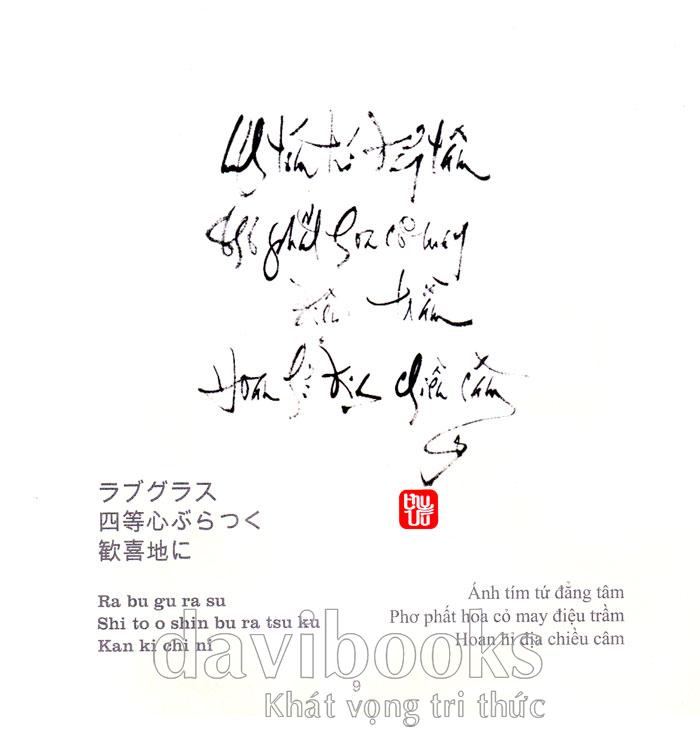 Ánh tím tứ đẳng tâm
Phơ phất hoa cỏ may
điệu trầm
Hoan hỉ địa chiều câm
ラブグラス
四等心ぶらつく
歓喜地に
Ra bu gu ra su
Shi to o shin bu ra tsu ku
Kan ki chi ni
Ánh tím tứ đẳng tâm
Phơ phất hoa cỏ may điệu trầm
Hoan hỉ địa chiều câm
davibooks
9
Khát vọng tri thức